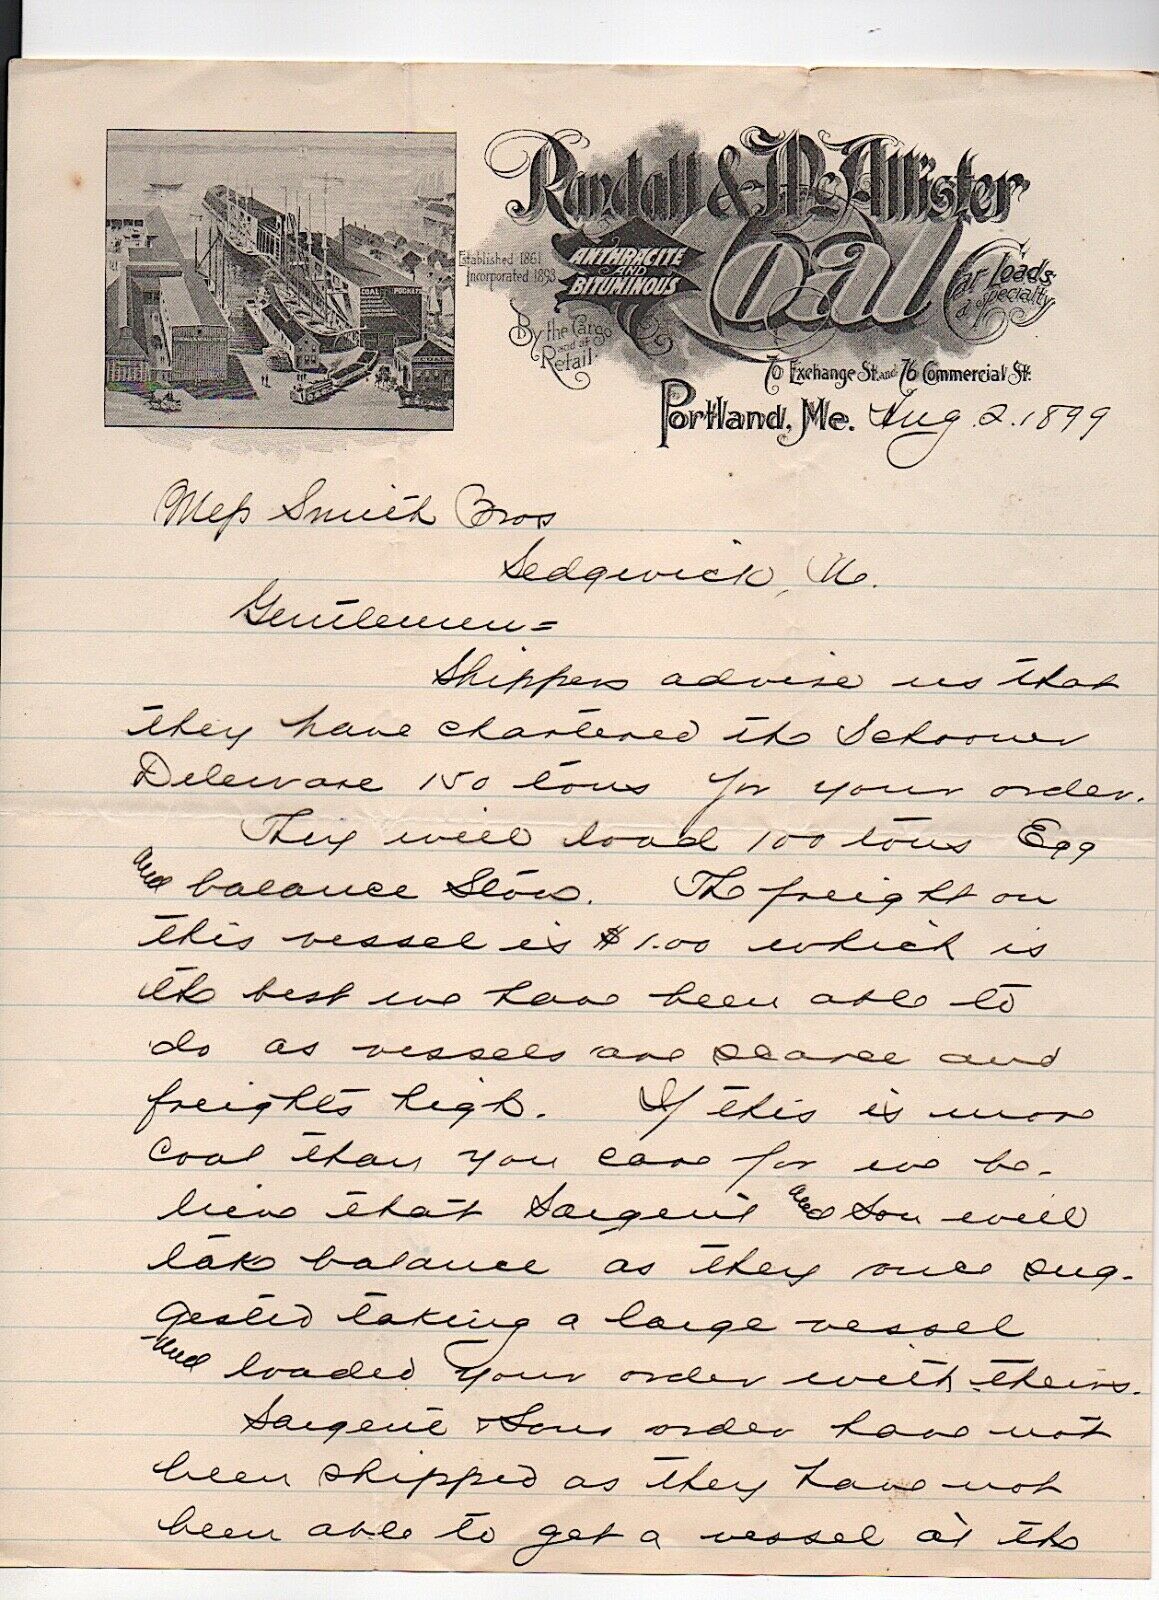 Randall & McAllister
Established 1861
Incorporated 1893
ANTHRACITE
AND
BITUMINOUS
Coal
Car Loads
a specialty
By the Cargo
and at
Retail
70 Exchange St. and 76 Commercial St.
Portland, Me. Aug. 2. 1899
COAL POCKETS
COAL
Mess Smith Bros
Sedgwick, Me.
Gentlemen=
Shippers advise us that
they have chartered the Schooner
Deleware 150 tons for your order.
They will load 100 tons Egg
and balance Stove. The freight on
this vessel is $1.00 which is
the best we have been able to
do as vessels are scarce and
freights high. If this is more
coal than you care for we be-
lieve that Sargent and Son will
take balance as they once sug-
gested taking a large vessel
and loaded your order with theirs.
Sargent & Sons order have not
been shipped as they have not
been able to get a vessel at the